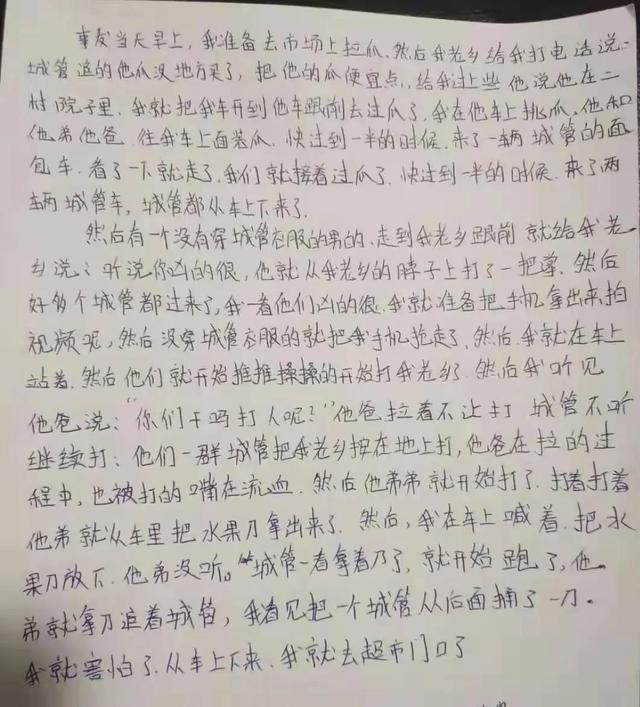 事发当天早上，我准备去市场上拉瓜.然后我老乡给我打电话说.
城管追的他瓜没地方买了，把他的瓜便宜点，给我过上些他说他在二
村院子里.我就把我车开到他车跟前去过瓜了.我在他车上挑瓜.他和
他弟他爸往我车上面装瓜.快过到一半的时候.来了一辆城管的面
包车.看了一下就走了.我们就接着过瓜了.快过到一半的时候.来了两
辆城管车，城管都从车上下来了.
然后有一个没有穿城管衣服的男的.走到我老乡跟前就给我老
乡说：听说你凶的很，他就从我老乡的脖子上打了一把掌.然后
好多个城管都过来了，我一看他们凶的很.我就准备把手机拿出来拍
视频呢，然后没穿城管衣服的就把我手机抢走了.然后我就在车上
站着.然后他们就开始推推搡搡的开始打我老乡.然后我听见
他爸说："你们干吗打人呢？"他爸拉着不让打 城管不听
继续打：他们一群城管把我老乡按在地上打，他爸在拉的过
程中，也被打的嘴在流血.然后他弟弟就开始打了.打着打着
他弟就从车里把水果刀拿出来了.然后，我在车上喊着.把水
果刀放下.他弟没听。城管一看拿着刀了，就开始跑了，他
弟就拿刀追着城管，我看见把一个城管从后面捅了一刀。
我就害怕了.从车上下来、我就去超市门口了